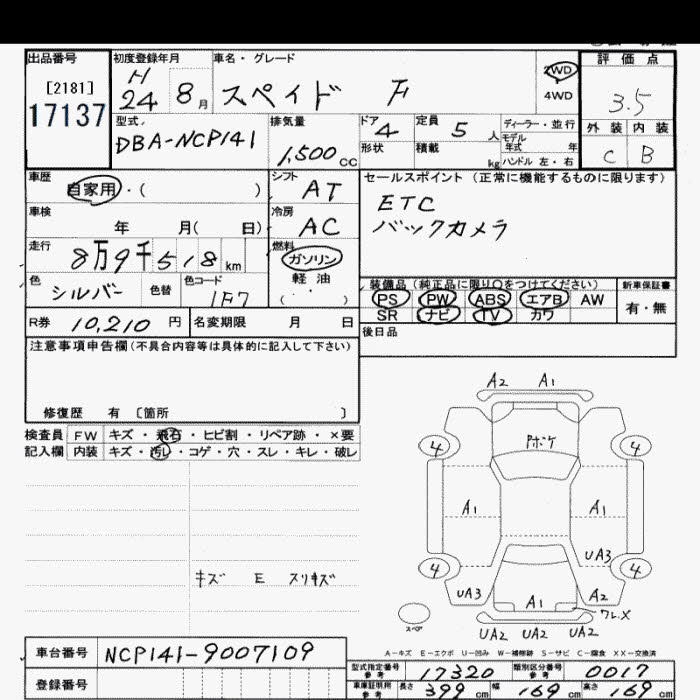 出品番号 初度登録年月 車名・グレード 2WD 評価点
[2181] H
17137 24 8月 スペイド F 4WD 3.5
型式 排気量 ドア 4 定員 5 人 ディーラー・並行 外装 内装
DBA-NCP141 1,500 CC 形状 積載 kg モデル年式 年 C B
ハンドル 左・右
車歴 シフト セールスポイント(正常に機能するものに限ります)
自家用・( ) AT ETC
車検 冷房 バックカメラ
年 月( 日) AC
走行 燃料
8万9千518 km ガソリン
色 色替 色コード 軽油 装備品(純正品に限り○をつけてください) 新車保証書
シルバー 1F7 (・) PS PW ABS エアB AW 有・無
R券 10,210円 名変期限 月 日 SR ナビ TV カワ
注意事項申告欄(不具合内容等は具体的に記入して下さい) 後日品
修復歴 有 〔箇所 〕
検査員 FW キズ・飛石・ヒビ割・リペア跡・×要
記入欄 内装 キズ・汚レ・コゲ・穴・スレ・キレ・破レ
キズ E スリキズ
A2 A1
4 4
A1 A1
UA3
4 4
UA3 A1 A2
ワレ.X
スペア UA2 UA2 UA2
A-キズ E-エクボ U-凹み W-補修跡 S-サビ C-腐食 XX-交換済
車台番号 NCP141-9007109
登録番号
型式指定番号 参考 17320 類別区分番号 参考 0017
車庫証明用 参考 長さ 399 cm 幅 169 cm 高さ 169 cm